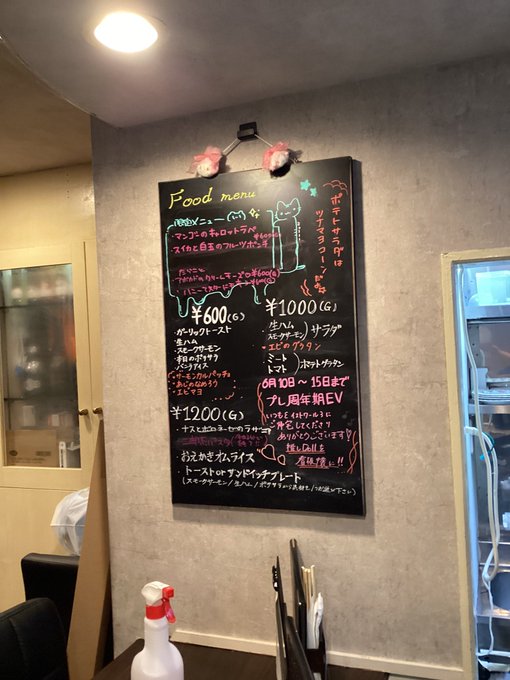 Food menu
メニュー
・マンゴーのキャロットラペ
¥600(G)
・スイカと白玉のフルーツポンチ
ポテトサラダは
ツナマヨコーンだぬ
¥600(G)
¥600(G)
¥600(G)
・ガーリックトースト
・生ハム
・スモークサーモン
・本日のポテサラ
・バニラアイス
・サーモンカルパッチョ
・あじのなめろう
・エビマヨ
¥1000(G)
・生ハム
スモークサーモン
サラダ
・エビのグラタン
・ミート
トマト
ポテトグラタン
6月10日〜15日まで
プレ周年期EV
いつも
ご帰宅してくださり
ありがとうございます
推しDollを
¥1200(G)
・ナスとボロネーゼのラザニア
・おえかきオムライス
・トーストorサンドイッチプレート
(スモークサーモン/生ハム/ポテサラからお選び下さい)